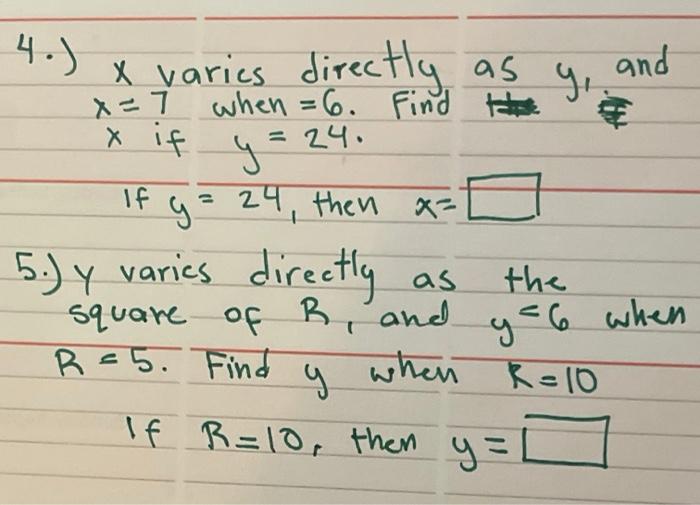 4.) x varies directly as y, and
x = 7 when = 6. Find
x if y = 24.
If y = 24, then x=
5.) y varies directly as the
square of R, and y = 6 when
R = 5. Find y when R = 10
If R = 10, then y =